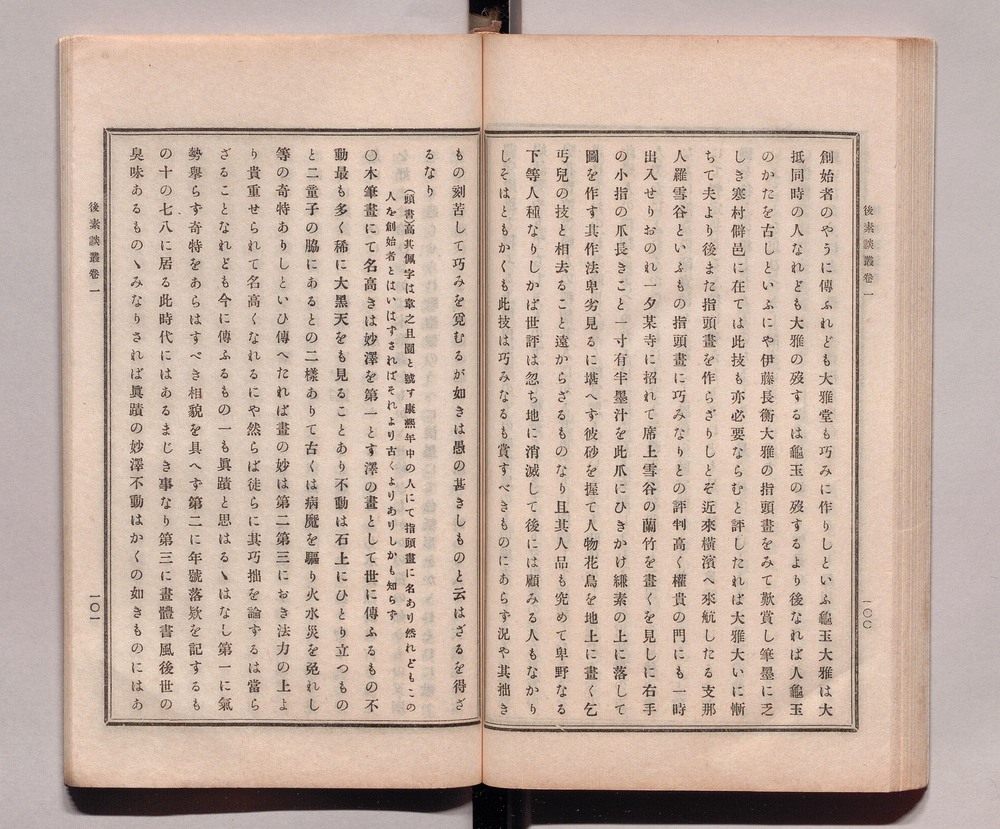 後素談叢卷一
一〇〇
創始者のやうに傳ふれども大雅堂も巧みに作りしといふ龜玉大雅は大
抵同時の人なれども大雅の歿するは龜玉の歿するより後なれば人龜玉
のかたを古しといふにや伊藤長衡大雅の指頭畫をみて歎賞し筆墨に乏
しき寒村僻邑に在ては此技も亦必要ならむと評したれば大雅大いに慚
ちて夫より後また指頭畫を作らざりしとぞ近來橫濱へ來航したる支那
人羅雪谷といふもの指頭畫に巧みなりとの評判高く權貴の門にも一時
出入せりおのれ一夕某寺に招れて席上雪谷の蘭竹を畫くを見しに右手
の小指の爪長きこと一寸有半墨汁を此爪にひきかけ縑素の上に落して
圖を作す其作法卑劣見るに堪へす彼砂を握て人物花鳥を地上に畫く乞
丐兒の技と相去ること遠からざるものなり且其人品も究めて卑野なる
下等人種なりしかば世評は忽ち地に消滅して後には顧みる人もなかり
しそはともかくも此技は巧みなるも賞すべきものにあらす況や其拙き
もの刻苦して巧みを覓むるが如きは愚の甚きしものと云はざるを得ざ
るなり
(頭書)高其佩字は韋之且園と號す康熙年中の人にて指頭畫に名あり然れどもこの
人を創始者とはいはずさればそれより古くよりありしかも知らず
〇木筆畫にて名高きは妙澤を第一とす澤の畫として世に傳ふるもの不
動最も多く稀に大黑天をも見ることあり不動は石上にひとり立つもの
と二童子の脇にあるとの二樣ありて古くは病魔を驅り火水災を免れし
等の奇特ありしといひ傳へたれば畫の妙は第二第三におき法力の上よ
り貴重せられて名高くなれるにや然らば徒らに其巧拙を論ずるは當ら
ざることなれども今に傳ふるもの一も眞蹟と思はるゝはなし第一に氣
勢擧らず奇特をあらはすべき相貌を具へず第二に年號落欵を記するも
の十の七八に居る此時代にはあるまじき事なり第三に畫體書風後世の
臭味あるものゝみなりされば眞蹟の妙澤不動はかくの如きものにはあ
後素談叢卷一
一〇一